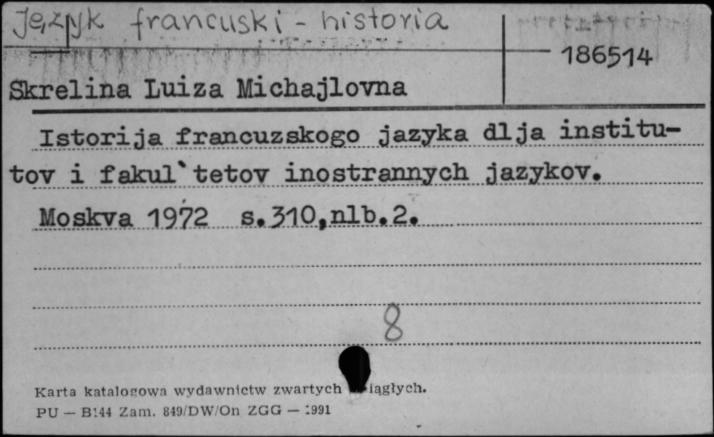 Język francuski - historia
186514
Skrelina Luiza Michajlovna
Istorija francuzskogo jazyka dlja institu-
tov i fakul`tetov inostrannych jazykov.
Moskva 1972 s.310,nlb.2.
8
Karta katalogowa wydawnictw zwartych iągłych.
PU — B144 Zam. 849/DW/On ZGG — 1991